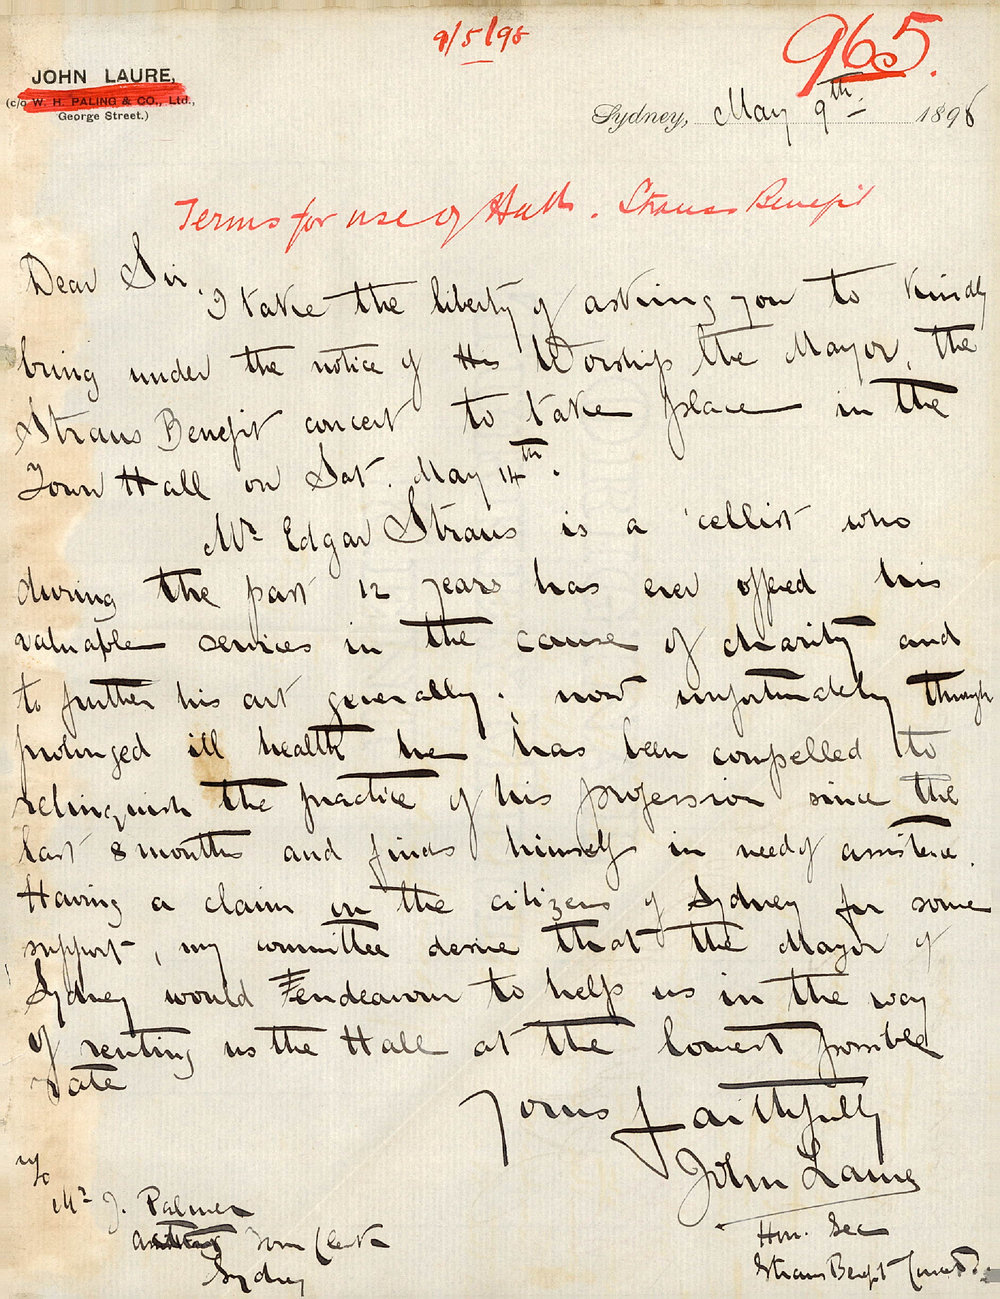 9/5/98
965.
JOHN LAURE,
(c/o W. H. PALING & CO., Ltd.,
George Street.)
Sydney, May 9th 1898
Terms for use of Hall. Straus Benefit
Dear Sir,
I take the liberty of asking you to kindly
bring under the notice of His Worship the Mayor, the
Straus Benefit concert to take place in the
Town Hall on Sat. May 14th.
Mr Edgar Straus is a 'cellist who
during the past 12 years has ever offered his
valuable services in the cause of charity and
to further his art generally; now unfortunately through
prolonged ill health he has been compelled to
relinquish the practice of his profession since the
last 8 months and finds himself in need of assistance.
Having a claim on the citizens of Sydney for some
support, my committee desire that the Mayor of
Sydney would endeavour to help us in the way
of renting us the Hall at the lowest possible
rate
Yours faithfully
John Laure
Hon. Sec
Straus Benefit
Mr J. Palmer
Town Clerk
Sydney